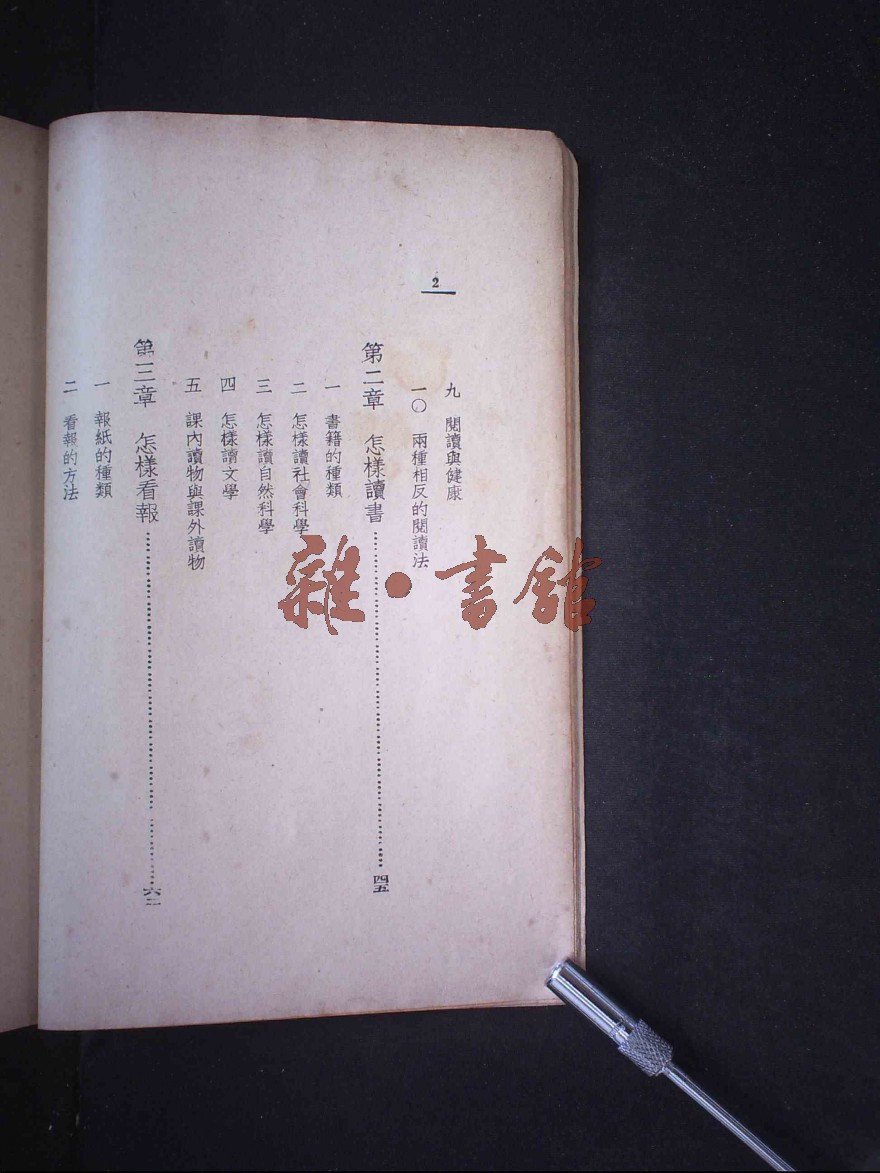 2
九 閱讀與健康
一〇 兩種相反的閱讀法
第二章 怎樣讀書……四五
一 書籍的種類
二 怎樣讀社會科學
三 怎樣讀自然科學
四 怎樣讀文學
五 課內讀物與課外讀物
第三章 怎樣看報……六二
一 報紙的種類
二 看報的方法
雜·書館